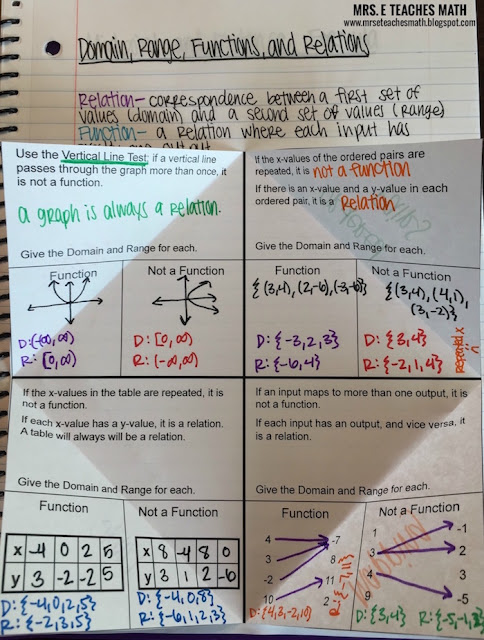 MRS. E TEACHES MATH
www.mrseteachesmath.blogspot.com
Domain, Range, Functions, and Relations
Relation- correspondence between a first set of
values (domain) and a second set of values (range)
Function- a relation where each input has
Use the Vertical Line Test; if a vertical
line passes through the graph more than once, it
is not a function.
a graph is always a relation.
Give the Domain and Range for each.
Function
Not a Function
D:(-∞,∞)
R: [0,∞)
D: [0,∞)
R: (-∞,∞)
If the x-values of the ordered pairs are
repeated, it is not a function
If there is an x-value and a y-value in each
ordered pair, it is a Relation
Give the Domain and Range for each.
Function
Not a Function
{(3,4), (2,-6), (-3,-6)}
{(3,4), (4,1),
(3,-2)}
D: {-3,2,3}
R: {-6,4}
D: {3,4}
R: {-2,1,4}
repeated x
If the x-values in the table are repeated, it is
not a function.
If each x-value has a y-value, it is a relation.
A table will always will be a relation.
Give the Domain and Range for each.
Function
Not a Function
x -4 0 2 5
y 3 -2 -2 5
x 8 -4 8 0
y 3 1 2 -6
D: {-4,0,2,5}
R: {-2,3,5}
D: {-4,0,8}
R: {-6,1,2,3}
If an input maps to more than one output, it is
not a function.
If each input has an output, and vice versa, it
is a relation.
Give the Domain and Range for each.
Function
Not a Function
4 -7
3 8
-2 11
10 2
D: {4,3,-2,10}
R: {-7,11}
1 -1
3 2
4 3
9 -5
D: {3,4}
R: {-5,-1,2}